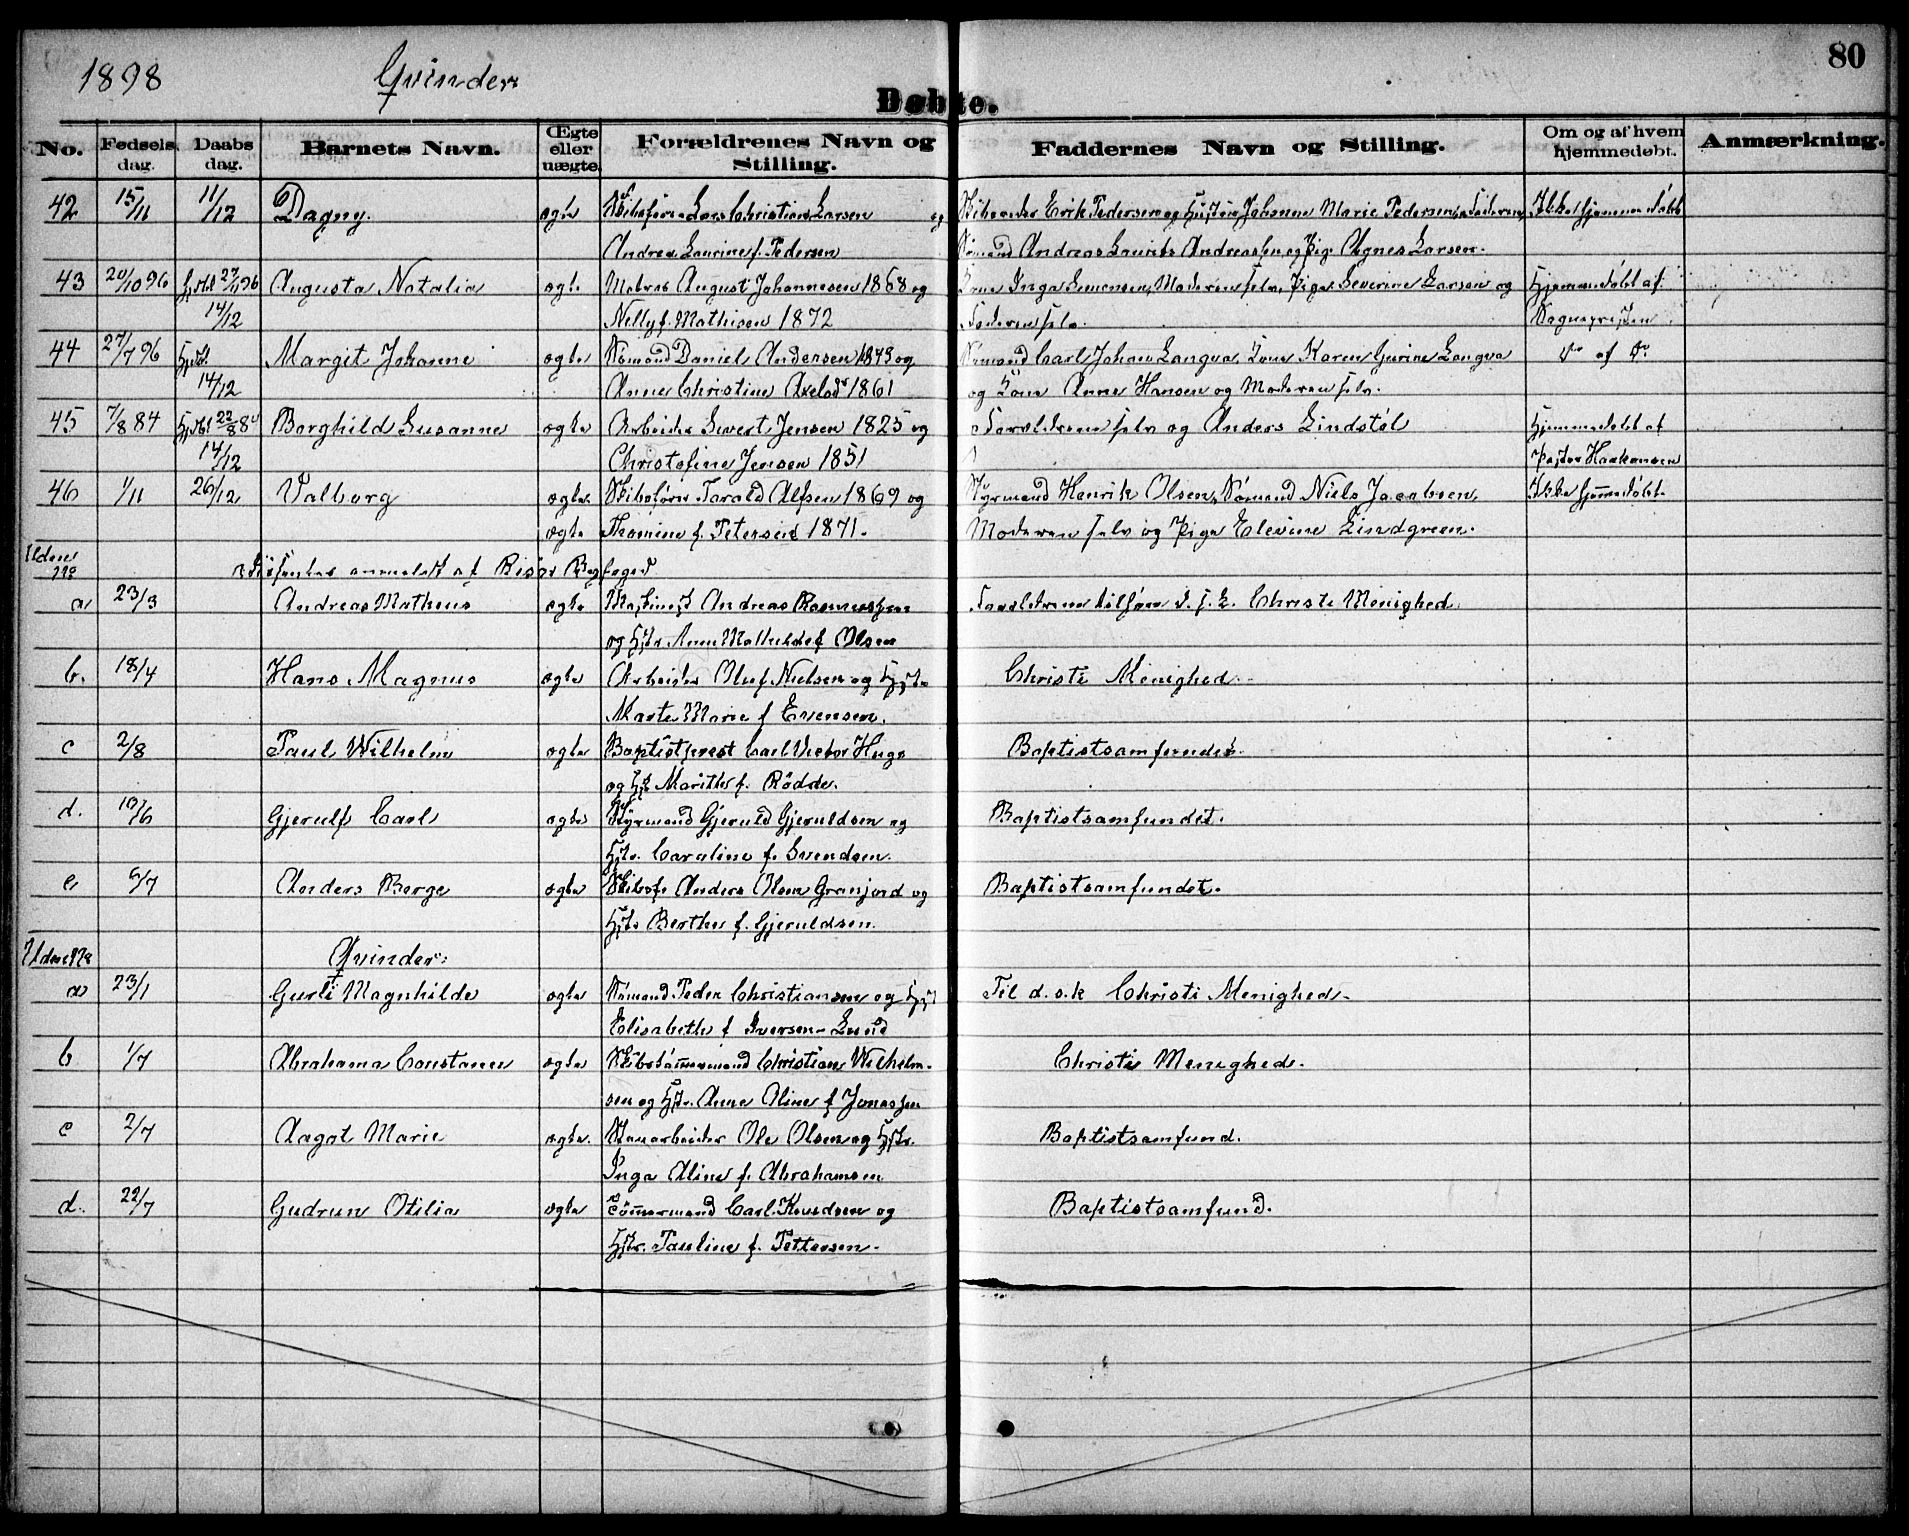 1898 Qvinder 80
Døbte.
No. Fødsels dag. Daabs dag. Barnets Navn. Ægte eller uægte. Forældrenes Navn og Stilling. Faddernes Navn og Stilling. Om og af hvem hjemmedøbt. Anmærkning.
42 15/11 11/12 Dagny. ægte Skibsfører Lars Christian Larsen og Erik Pedersen og Hustru Johanne Marie Pedersen, Faderen, Ikke hjemmedøbt
Andrea Laurine f. Pedersen Sømand Andreas Laurits Andreassen og Pige Agnes Larsen.
43 20/10 96 hjdbt 27/11 96 Augusta Natalia ægte Matros August Johannesen 1868 og Kone Inga Simonsen, Moderen selv, Pige Severine Larsen og Hjemmedøbt af
14/12 Nelly f. Mathisen 1872 Faderen selv. Sognepresten
44 27/7 96 hjdbt Margit Johanne ægte Sømand Daniel Andersen og Sømand Carl Johan Langva, Kone Karen Gurine Langva Do af Do
14/12 Anne Christine Axelsd 1861 og Kone Anne Hansen og Moderen selv.
45 7/8 84 hjdbt 22/8 84 Borghild Susanne ægte Arbeider Sivert Jensen 1825 og Forældrene selv og Anders Lindstøl Hjemmedøbt af
14/12 Christofine Jensen 1851 Pastor Haakonsen
46 1/11 26/12 Valborg ægte Skibsfører Tarald Alfsen 1869 og Styrmand Henrik Olsen, Sømand Niels Jacobsen, Ikke hjemmedøbt
ægte Thomine f. Petersen 1871. Moderen selv og Pige Elevine Lindgreen.
Uden No anmeldt af Risør Byfoged
a 23/3 Andreas Matheus ægte Maskinist Andreas Rasmussen Forældrene tilhøre d. s. k. Christi Menighed.
og Hstr Anne Mathilde f Olsen
b. 18/4 Hans Magnus ægte Arbeider Oluf Nielsen og Hustr Christi Menighed.
Marte Marie f Evensen.
c 2/8 Paul Wilhelm ægte Baptistprest Carl Victor Hugo Baptistsamfundet.
og Hst Marithe f. Rødde.
d. 13/6 Gjerulf Carl ægte Styrmand Gjeruld Gjeruldsen og Baptistsamfundet.
Hstr. Caroline f. Svendsen.
e 5/7 Anders Berge ægte Skibsf. Anders Olsen Granjord og Baptistsamfundet.
Hstr Berthe f. Gjeruldsen.
Uden No Qvinder:
a 23/1 Gurli Magnhilde ægte Sømand Peder Christiansen og Hst Til d. s. k Christi Menighed.
Elisabethe f Iversen Lund
b 1/7 Abrahama Constance ægte Skibstømmermand Christian Wilhelm- Christi Menighed.
sen og Hstr. Anne Oline f Jonassen
c 2/7 Aagot Marie ægte. Stenarbeider Ole Olsen og Hstr. Baptistsamfund.
Inga Aline f. Abrahamsen
d. 22/7 Gudrun Otilia ægte Tømmermand Carl Knudsen og Baptistsamfund.
Hstr. Pauline f. Pettersen.